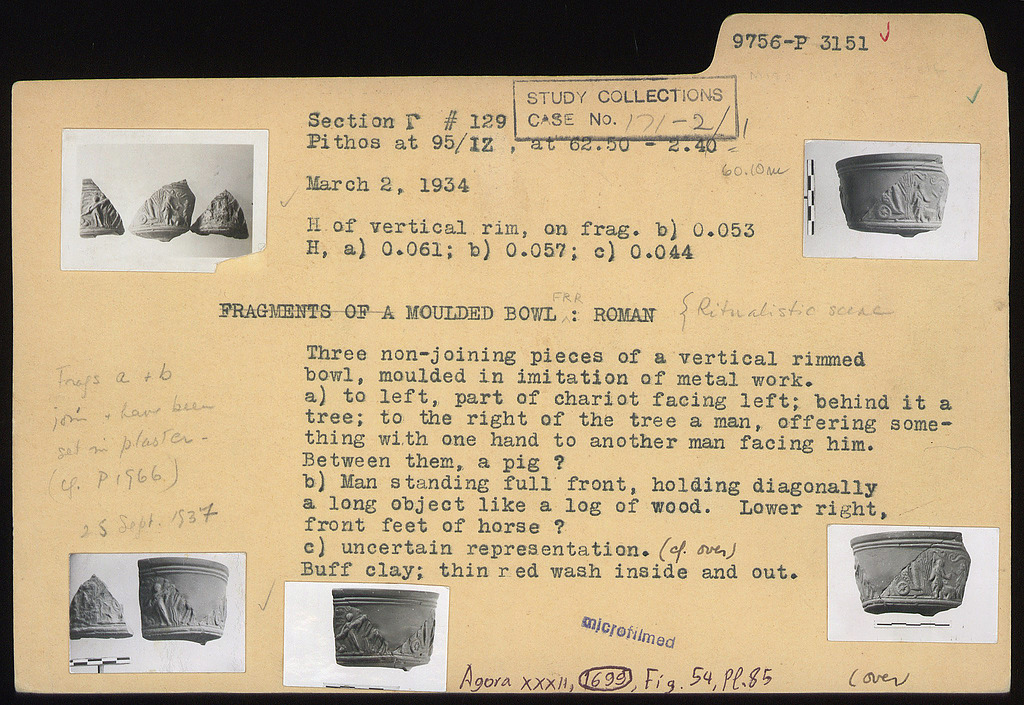 9756-P 3151
STUDY COLLECTIONS
CASE No. 171-2/1
Section Γ # 129
Pithos at 95/IZ , at 62.50 - 2.40 =
60.10 m
March 2, 1934
H of vertical rim, on frag. b) 0.053
H, a) 0.061; b) 0.057; c) 0.044
FRR
FRAGMENTS OF A MOULDED BOWL : ROMAN { Ritualistic scene
Three non-joining pieces of a vertical rimmed
bowl, moulded in imitation of metal work.
a) to left, part of chariot facing left; behind it a
tree; to the right of the tree a man, offering some-
thing with one hand to another man facing him.
Between them, a pig ?
b) Man standing full front, holding diagonally
a long object like a log of wood. Lower right,
front feet of horse ?
c) uncertain representation. (cf. over)
Buff clay; thin red wash inside and out.
Frags a + b
join + have been
set in plaster -
(cf. P 1966)
25 Sept. 1937
microfilmed
Agora XXXII, 1699, Fig. 54, Pl. 85
(over